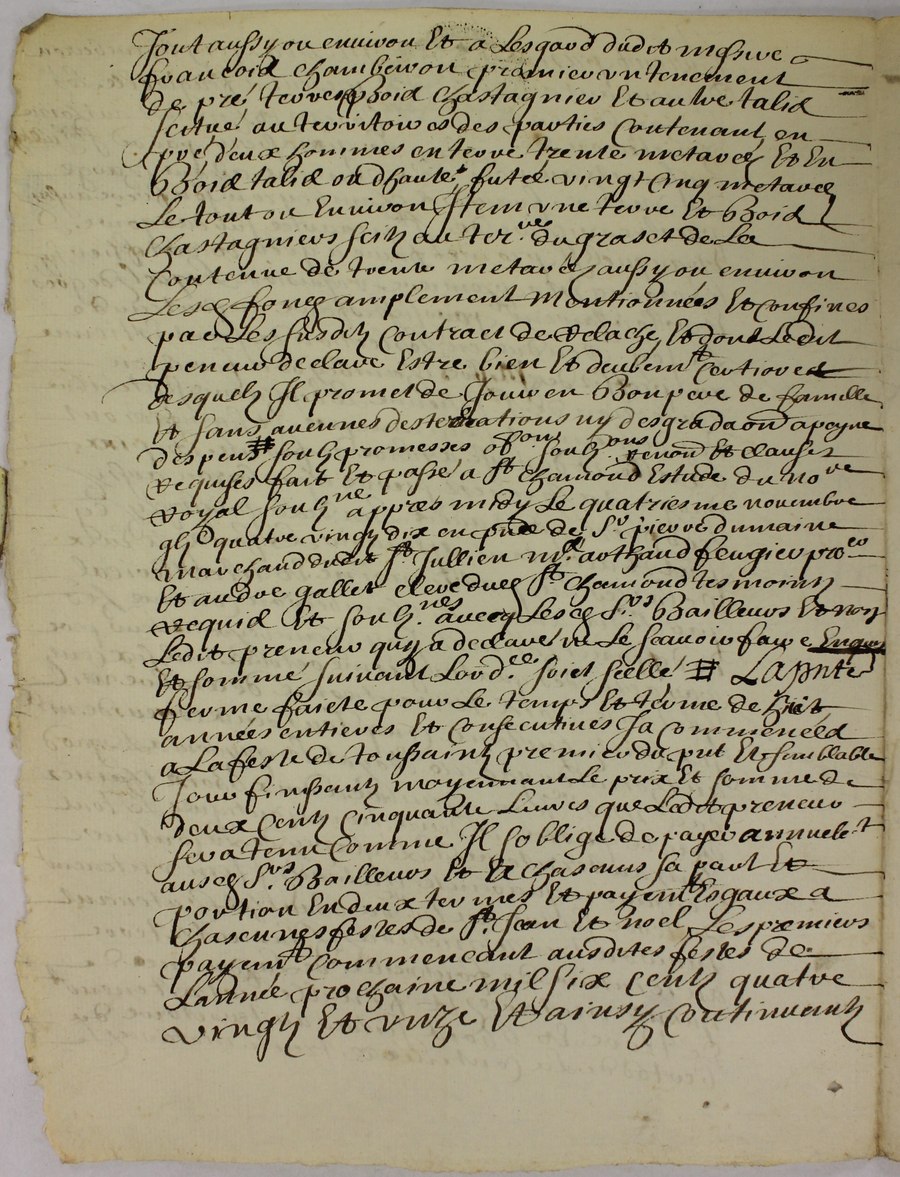 Tout aussy ou environ Et a Lesgard dudit messire
françois chambeiron premier un tenement
de pré terres Bois chastagnier Et autre talis
scitué au territoire des parties Contenant en
pré deux hommes en terre trente metares Et En
Bois talis ou d'haute futee vingt Cinq metares
Le tout ou Environ Item une terre Et Bois
Chastagniers scitz au ter.re du graset de La
Contenue de trente metares aussy ou environ
Lesd fondz amplement mentionnées Et confines
par Les susditz Contract de relache Et dont Ledit
preneur declare Estre bien Et deubemt Certioré
desquelz Il promet de Jouir en Bon pere de famille
Et sans aucunes desteriorations ny desgradaon a peyne
despens # soubz promesses obons soubzons renonons Et clauses
requises fait Et passé a st chamond Estude du nore
royal soubzné appres midy Le quatriesme novembre
gbic quatre vingtz dix en pnce de Sr pierre dumaine
marchand dudit st Jullien me arthaud feugier procr
Et andre gallet clerc dud st chamond tesmoins
requis Et soubznés avecq Lesd Srs Bailleurs Et non
Ledit preneur quy a declaré ne Le scavoir faire Enquis
Et sommé suivant Lordce soict scellé # La pnte
ferme faicte pour Le temps Et terme de huit
années entieres Et consecutives Ja commencées
a La feste de toussaintz premier du pnt Et semblable
Jour finissantz moyennant Le prix Et somme de
deux Centz Cinquante Livres que Ledit preneur
sera tenu comme Il soblige de payer annuelet
ausd Srs Bailleurs Et A chascuns sa part Et
portion En deux termes Et payemts Esgaux a
Chascunes festes de st Jean Et noel Les premiers
payemt Commencant ausdites festes de
Lannée prochaine mil six Centz quatre
vingtz Et unze Et ainsy Continuantz